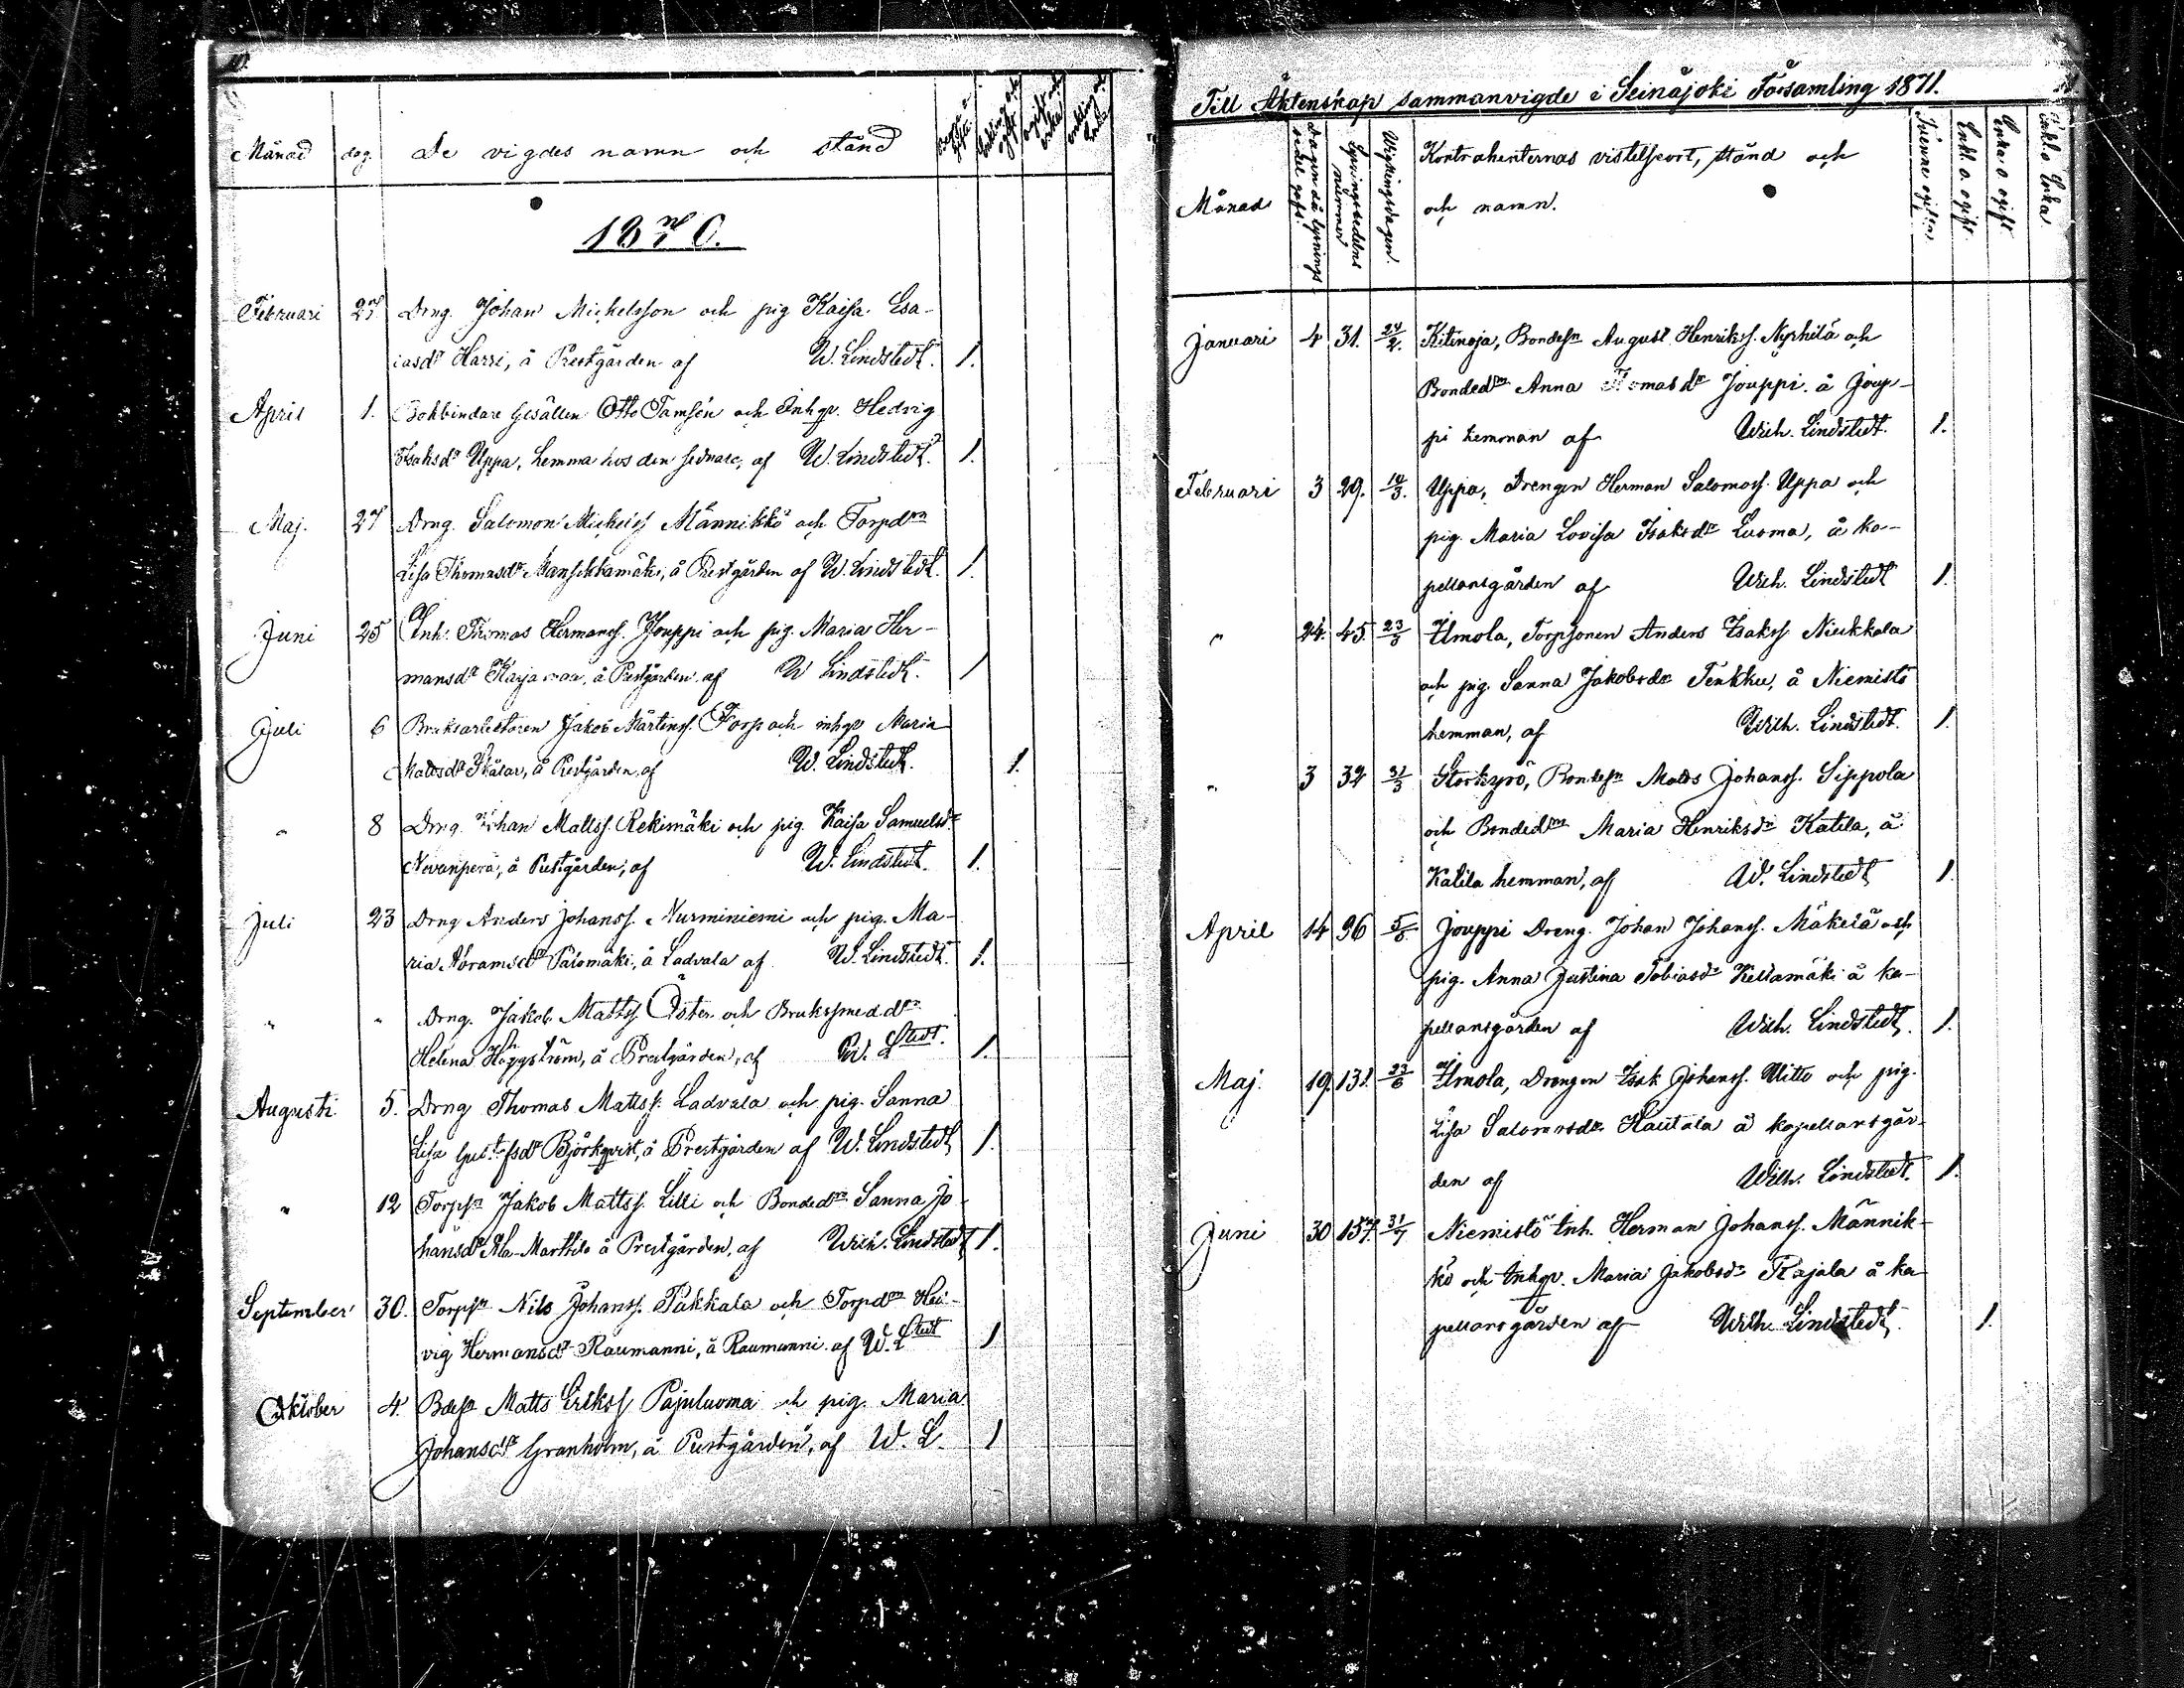 Månad dag. De vigdes namn och stånd
1870.
Februari 27. Drng. Johan Michelsson och pig Kaisa Esa-
iasdr Harri, å Prestgården af W. Lindstedt. 1.
April 1. Bokbindare Gesällen Otto Tamsén och Inhqv. Hedvig
Isaksdr Uppa, hemma hos den sednare, af W. Lindstedt. 1.
Maj. 27 Drng. Salomon Michelss Männikkö och Torpdrn
Lisa Thomasdr Mansikkamäki, å Prestgården af W. Lindstedt. 1.
Juni 25 Inh. Thomas Hermanss. Jouppi och pig. Maria Her-
mansdr å Prestgården af W Lindstedt. 1
Juli 6 Bruksarbetaren Jakob Mårtenss. Torp och inhqv Maria
Mattsdr å Prestgården, af W. Lindstedt. 1.
" 8 Drng. Johan Mattss. Rekimäki och pig. Kaisa Samuelsdr
Nevanperä, å Prestgården, af W. Lindstedt. 1.
Juli 23 Drng Anders Johanss. Nurminiemi och pig. Ma-
ria Abramsdr Palomäki, å Ladvala af W. Lindstedt. 1.
" " Drng. Jakob Mattss. Öster och Bruksmeddr
Helena Häggström, å Prestgården, af W. Lstedt. 1.
Augusti 5. Drng Thomas Mattss. Ladvala och pig. Sanna
Lisa Gustafsdr Björkqvist, å Prestgården af W. Lindstedt 1.
" 12 Torpsn Jakob Mattss. Lilli och Bondedrn Sanna Jo-
hansdr Ala-Marttila å Prestgården, af Wilh. Lindstedt 1.
September 30. Torpsn Nils Johanss. Pakkala och Torpdrn Hed-
vig Hermansdr Raumanni, å Raumanni af W. Lstedt 1
Oktober 4. Bdesn Matts Erikss Pajuluoma och pig. Maria
Johansdr Granholm, å Prestgården, af W. L. 1
Till Äktenskap sammanvigde i Seinäjoki Församling 1871.
Månad Dagen då lysningssedel gafs. Lysningssedelns nummer Vigningsdagen. Kontrahenternas vistelseort, stånd och
och namn. Tvenne ogifta Enkl. o. ogift. Enka o. ogift Enkl. o Enka
Januari 4 31. 24/2. Kitinoja, Bondesn August Henrikss. Nyrhilä och
Bondedrn Anna Thomasdr Jouppi å Joup-
pi hemman af Wilh. Lindstedt. 1.
Februari 3 29. 10/3. Uppa, Drengen Herman Salomoss. Uppa och
pig. Maria Lovisa Isaksdr Luoma, å ka-
pellansgården af Wilh. Lindstedt 1.
" 24. 45. 23/3 Ilmola, Torpsonen Anders Isakss Niukkala
och pig. Sanna Jakobsdr Tenkku, å Niemistö
hemman, af Wilh. Lindstedt. 1.
" 3 32 31/3 Storkyrö, Bondesn Matts Johanss. Sippola
och Bondedrn Maria Henriksdr Katila, å
Katila hemman, af W. Lindstedt 1.
April 14 96 5/5. Jouppi Dreng. Johan Johanss. Mäkelä och
pig. Anna Justina Tobiasdr Kellamäki å ka-
pellansgården af Wilh. Lindstedt. 1.
Maj. 19. 131. 23/6 Ilmola, Drengen Isak Johanss. Uitto och pig.
Lisa Salomosdr Hautala å kapellansgår-
den af Wilh. Lindstedt. 1.
Juni 30 157. 31/7 Niemistö Inh. Herman Johanss. Männik-
kö och Inhqv. Maria Jakobsdr Rajala å ka-
pellansgården af Wilh. Lindstedt. 1.